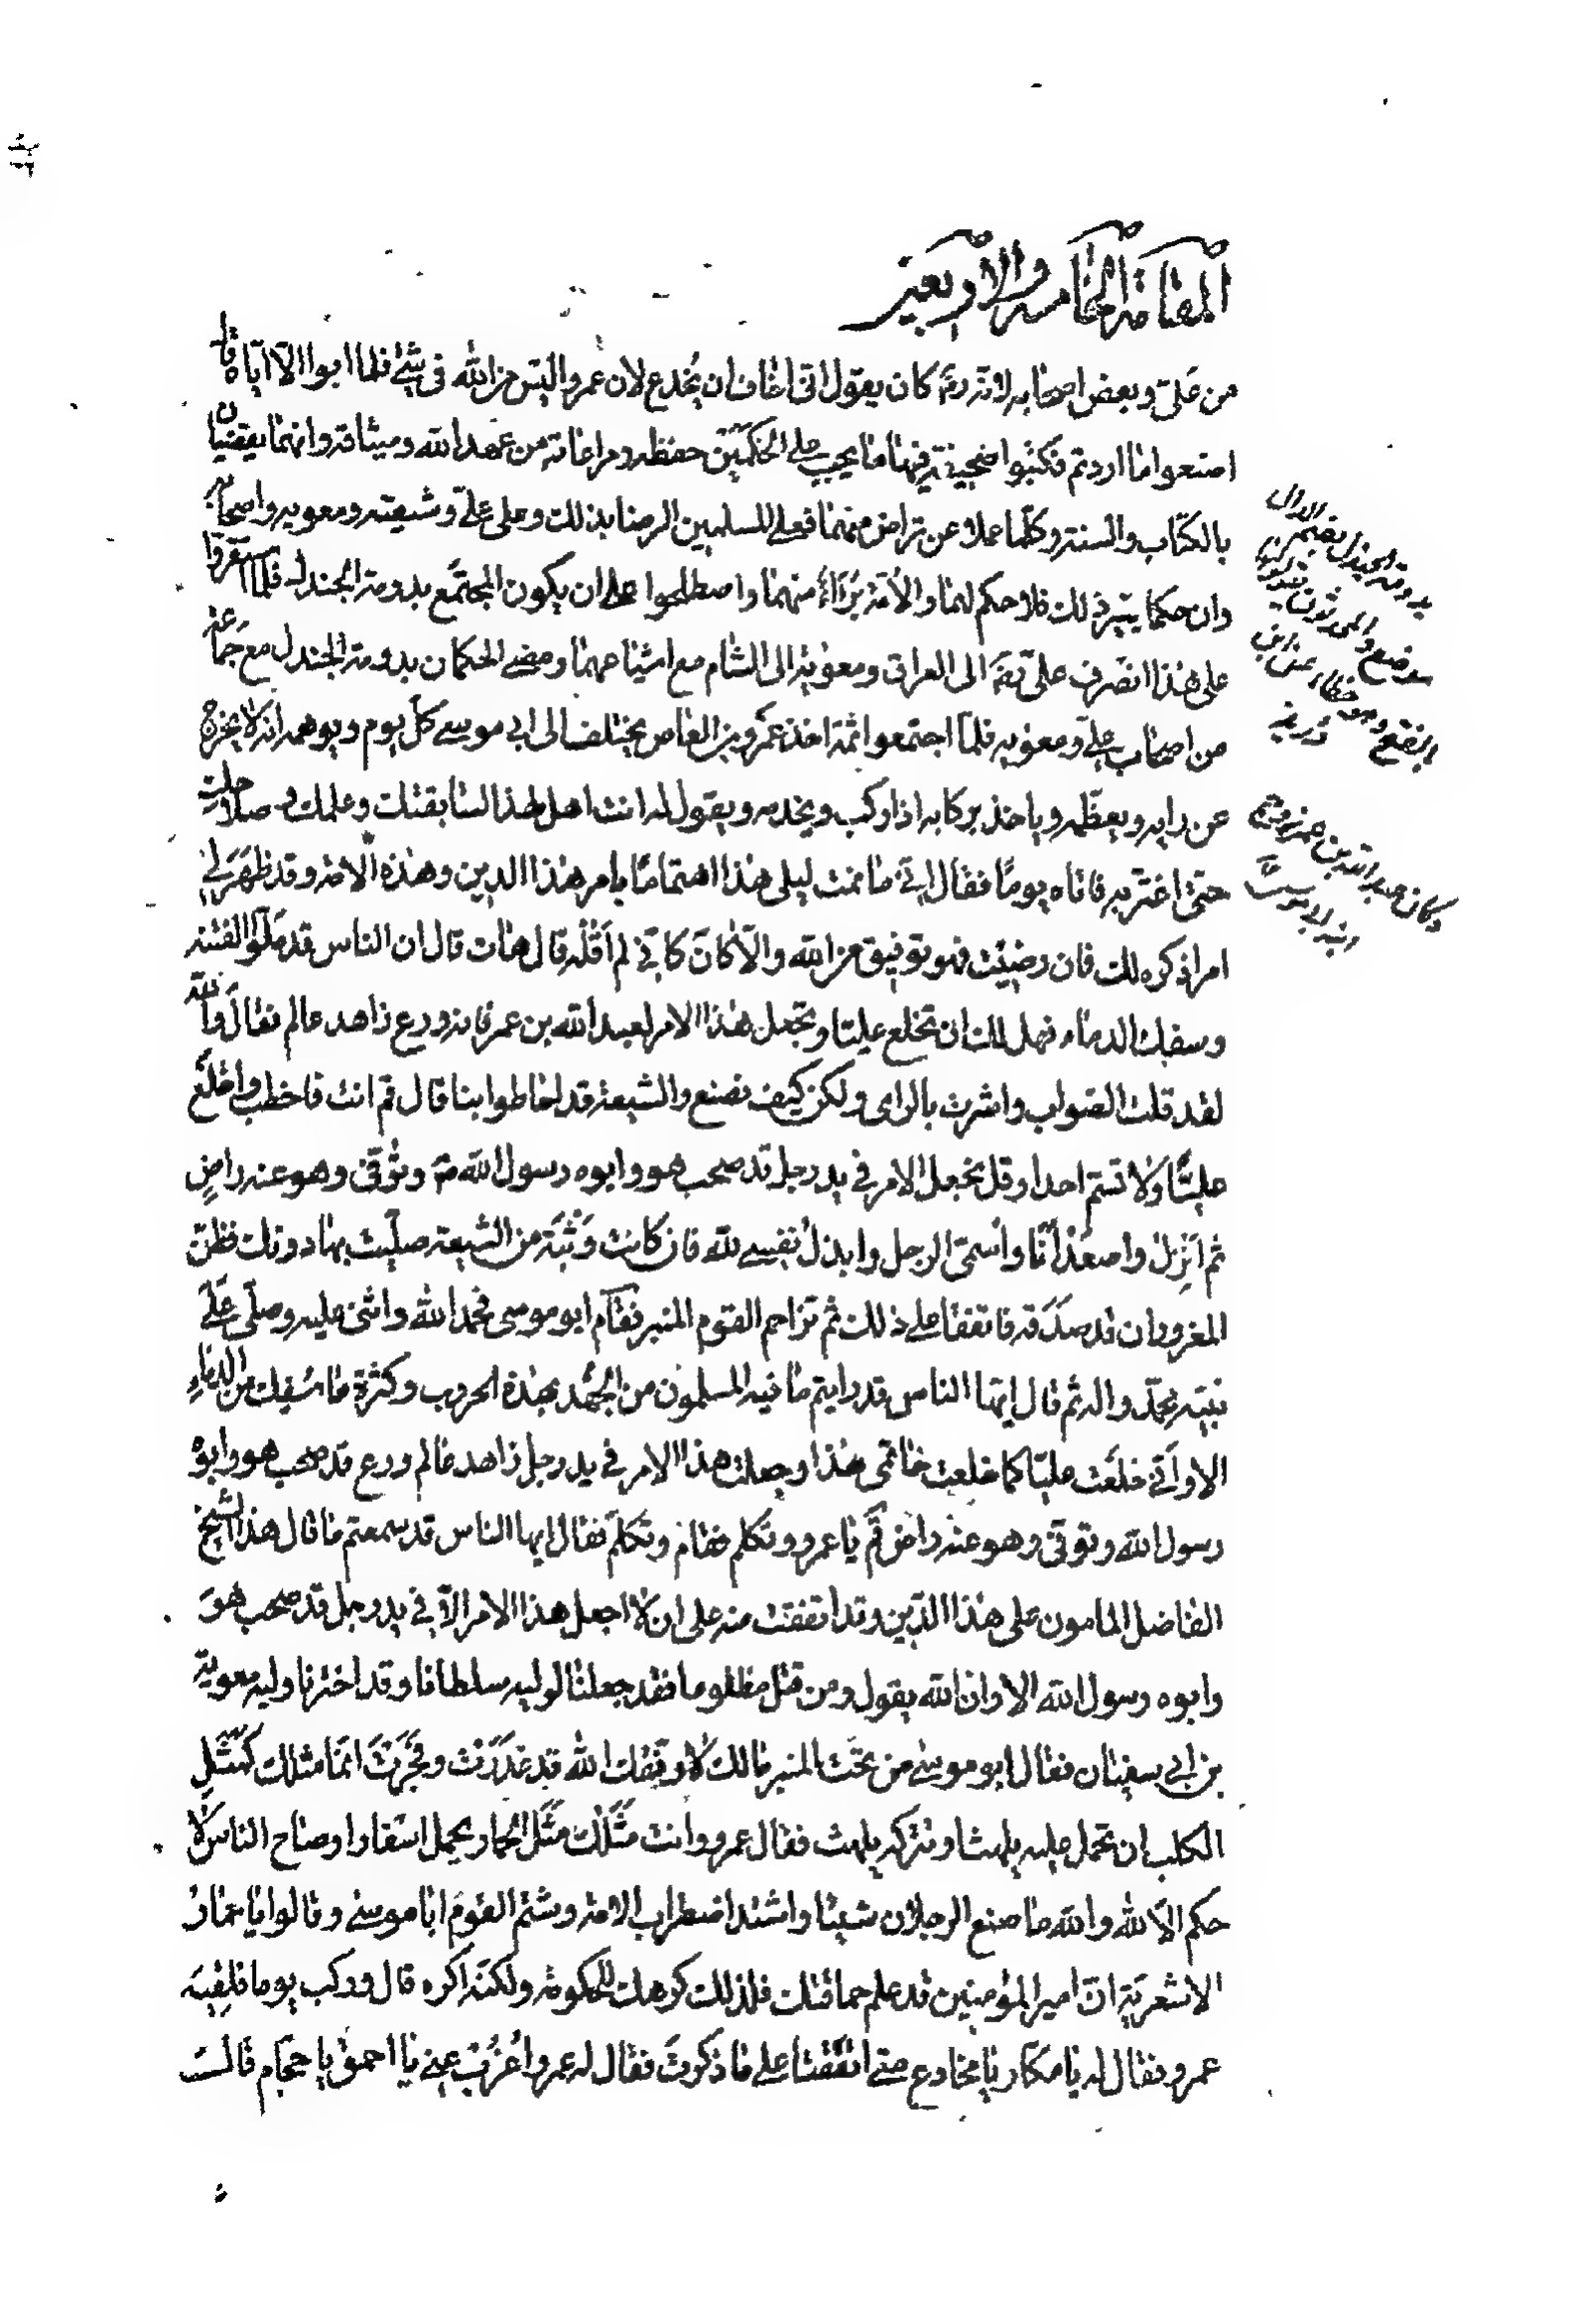 المقامة الخامسة والاربعين
من علىّ وبعض اصحابه لانه رضه كان يقول انى اخاف ان يُخدع لان عمروا ليس من الله فى شئ فلما ابوا الا اياه قال
اصنعوا ما اردتم فكتبوا صحيفة فيها ما يجب على الحَكَمَيْن حفظه ومراعاته من عهد الله وميثاقه وانهما يقضيان
بالكتاب والسنة وكلما عملا عن تراض منهما فعلى المسلمين الرضا بذلك وعلى علىّ وشيعته ومعويه واصحابه
وان حكما بغير ذلك فلا حكم لهما والأمة بُرَآءُ منهما واصطلحوا على ان يكون المجتمَع بدومة الجندل فلما تفرقوا
على هذا انصرف علىّ الى العراق ومعوية الى الشام مع اشياعهما ومضى الحكمان بدومة الجندل مع جماعة
من اصحاب علىّ ومعويه فلما اجتمعوا ثمة اخذ عمرو بن العاص يختلف الى ابى موسى كل يوم ويوهمه انه لا يخرج
عن رايه ويعظمه وياخذ بركابه اذا ركب ويخدمه ويقول له انت اهل لهذا لسابقتك وعلمك و صلاحك
حتى اغتر به فاتاه يومًا فقال انى ما نمت ليلى هذا اهتمامًا بامر هذا الدين وهذه الامة وقد ظهر لى
امر اذكره لك فان رضيت فهو توفيق من الله والا كانَ كانى لم اَقُلْهُ قال هات قال ان الناس قد ملّوا الفتنه
وسفك الدماء فهل لك ان تخلع عليّا وتجعل هذا الامر لعبد الله بن عمر فانه ورع زاهد عالم فقال والله
لقد قلت الصواب واشرت بالراى ولكن كيف نصنع والشيعة قد احاطوا بنا قال قم انت فاخطب واخلع
عليًّا ولا تسمّ احدا وقل نجعل الامر فى يد رجل قد صحب هو وابوه رسول الله صم وتوفى وهو عنه راضٍ
ثم اَنْزِلْ واصعد اَنَا واُسمّى الرجل وابذل نفسى لله فان كانت وَثْبَة من الشيعة صليت بها دونك فظن
المغرور ان قد صدَقه فاتفقا على ذلك ثم تزاحم القوم المنبر فقام ابو موسى فحمد الله واثنى عليه وصلّى على
نبيّه محمّد واله ثم قال ايها الناس قد رايتم ما فيه المسلمون من الجهد بهذه الحروب وكثرة ما سُفِك من الدماء
الا وانى خلعت عليّا كما خلعت خاتمى هذا وجعلت هذا الامر فى يد رجل زاهد عالم ورع قد صحب هو وابوه
رسول الله وتوفى وهو عنه راض قم يا عمرو وتكلم فقام وتكلم فقال ايها الناس قد سمعتم ما قال هذا الشيخ
الفاضل المامون على هذا الدين وقد اتفقت منه على ان لا اجعل هذا الامر الا فى يد رجل قد صحب هو
وابوه رسول الله الا وان الله يقول ومن قتل مظلوما فقد جعلنا لوليه سلطانا وقد اخترنا وليه معوية
بن ابى سفيان فقال ابو موسى من تحت المنبر مالك لا وفّقك الله قد غدَرْت وفَجَرْت انما مثلك كمثل
الكلب ان تحمل عليه يلهث او تتركه يلهث فقال عمرو وانت مَثَلك مَثَل الحمار يحمل اسفارا وصاح الناس لا
حكم الا لله والله ما صنع الرجلان شيئا واشتد اضطراب الامة وشتم القوم ابا موسى وقالوا يا حمار
الاشعرية انّ امير المؤمنين قد علم حماقتك فلذلك كرهك للحكومة ولكنه اكره قال وركب يوما فلقيه
عمرو فقال له يا مكار يا مخادع متى اتفقنا على ما ذكرت فقال له عمرو اُعْزُبْ عنى يا احمق يا حجام قالت
بدومة الجندل بضم الدال
موضع والمحدثون
الفتح وهو خطاء عن ابن
دريد
وكان عبد الله بن عمر زوج
ابنة لابى موسى